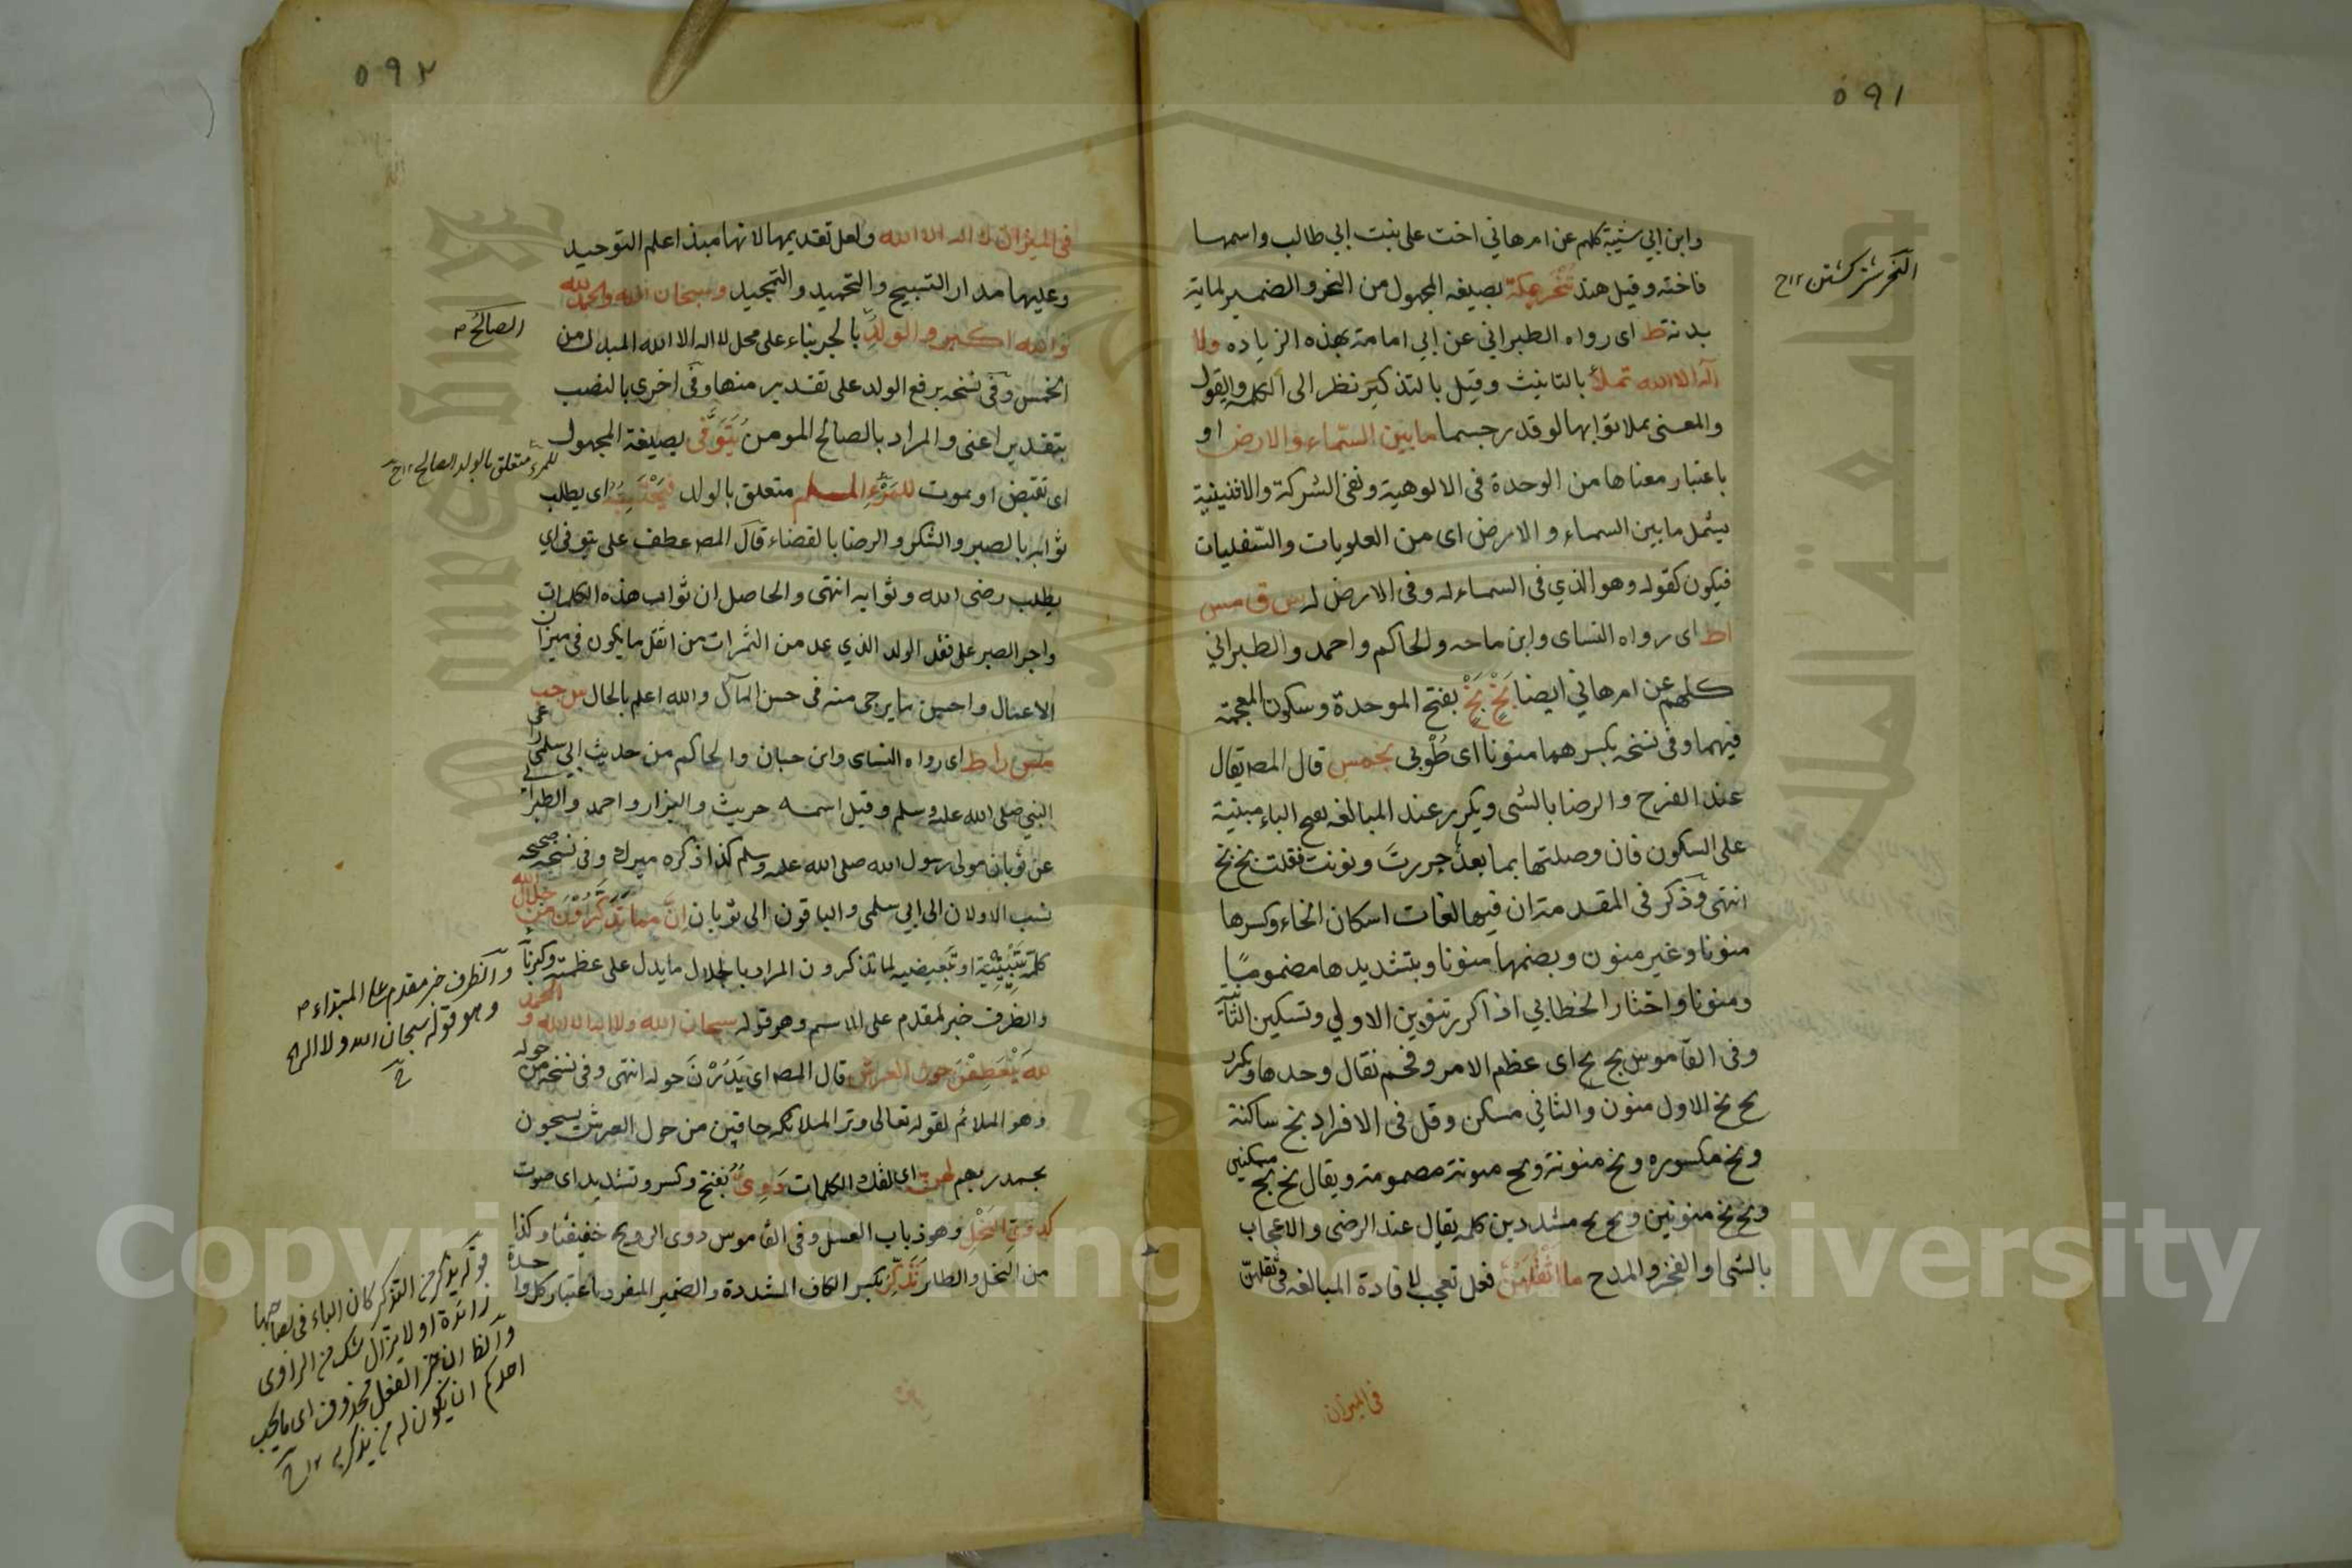 ٥٩١
وابن ابي شيبة كلهم عن ام هاني اخت علي بنت ابي طالب واسمها
فاخته وقيل هند تنحر بمكة بصيغه المجهول من النحر والضمير لماية
بدنة ط اى رواه الطبراني عن ابي امامة بهذه الزياده ولا
اله الا الله تملأ بالتانيث وقيل بالتذكير نظر الى الكلمه والقول
والمعنى يملا ثوابها لو قدر جسما ما بين السماء والارض او
باعتبار معناها من الوحدة فى الالوهية ونفى الشركة والاثنينية
يشمل ما بين السماء والارض اى من العلويات والسفليات
فيكون كقوله وهو الذي فى السماء اله وفى الارض اله س ق مس
اط اى رواه النساى وابن ماجه والحاكم واحمد والطبراني
كلهم عن ام هاني ايضا بَخْ بَخْ بفتح الموحدة وسكون المعجمة
فيهما وفى نسخه بكسرهما منونا اى طُوْبى بخمس قال المص يقال
عند الفرح والرضا بالشى ويكرر عند المبالغه بفتح الباء مبنية
على السكون فان وصلتها بما بعد جررت ونونت فقلت بخ بخ
انتهى وذكر فى المقدمة ان فيها لغات اسكان الخاء وكسرها
منونا وغير منون وبضمها منونا وبتشديدها مضموما
ومنونا واختار الخطابي اذا كرر تنوين الاولي وتسكين الثانية
وفى القاموس بخ بخ اى عظم الامر وفخم تقال وحدها وتكرر
بخ بخ الاول منون والثاني مسكن وقل فى الافراد بخ ساكنة
وبخ مكسوره وبخ منونة وبخ منونة مضمومة ويقال بخ بخ مسكنين
وبخ بخ منونين وبخ بخ مشددين كلمه يقال عند الرضى والاعجاب
بالشى او الفخر والمدح ما اثقلهن فعل تعجب لافادة المبالغه فى ثقلهن
فى الميزان
النحر شتر كشتن ١٢ ح
٥٩٢
فى الميزان لا اله الا الله ولعل تقديمها لانها مبذا علم التوحيد
وعليها مدار التسبيح والتحميد والتمجيد وسبحان الله والحمد لله
والله اكبر والولدِ بالجر بناء على محل لا اله الا الله المبدل من
الخمس وفى نسخه برفع الولد على تقدير منها وفى اخرى بالنصب
بتقدير اعنى والمراد بالصالح المومن يُتَوَفَّى بصيغة المجهول
اى تقبض او يموت للمرءِ المسلم متعلق بالولد فيحتسبه اى يطلب
ثوابه بالصبر والشكر والرضا بالقضاء قال المص عطف على يتوفى اي
يطلب رضى الله وثوابه انتهى والحاصل ان ثواب هذه الكلمات
واجر الصبر على فقد الولد الذي عد من الثمرات من اثقل ما يكون فى ميزان
الاعمال واحسن ما يرجى منه فى حسن المآل والله اعلم بالحال س حب
مس ر اط اى رواه النساى وابن حبان والحاكم من حديث ابي سلمى راعى
النبي صلى الله عليه وسلم وقيل اسمه حريث والبزار واحمد والطبراني
عن ثوبان مولى رسول الله صلى الله عليه وسلم كذا ذكره ميرك وفى نسخه صحيحه
نسب الاولان الى ابي سلمى والباقون الى ثوبان اِنَّ مما تَذَكَّرُوْنَ من جلال الله
كلمة تَبْيينِيَّة او تبعيضيه لما تذكرون المراد بالجلال ما يدل على عظمته وكبريائه
والظرف خبر لمقدم على الاسم وهو قوله سبحان الله ولا اله الا الله والحمد
لله يَنْعَطِفْنَ حول العرش قال المص اى يَدُرْنَ حوله انتهى وفى نسخه من حوله
وهو الملائم لقوله تعالى وترا الملائكه حافين من حول العرش يسبحون
بحمد ربهم لهن اى لتلك الكلمات دَوِيٌّ بفتح وكسر وتشديد اى صوت
كدوي النحل وهو ذباب العسل وفى القاموس دوى الريح خفيفها وكذا
من النحل والطائر تُذَكِّرُ بكسر الكاف المشددة والضمير المفرد باعتبار كل واحدة
الصالح ص
للمرء متعلق بالولد الصالح ١٢ ح
والظرف خبر مقدم على المبتداء ص
وهو قوله سبحان الله ولا اله الخ
ح
قوله يذكر من التذكر كان الباء فى بصاحبها
زائدة او لا يزال شك من الراوى
والظ ان خبر الفعل محذوف اى ما يحب
احدكم ان يكون له من يذكر به ١٢ ح